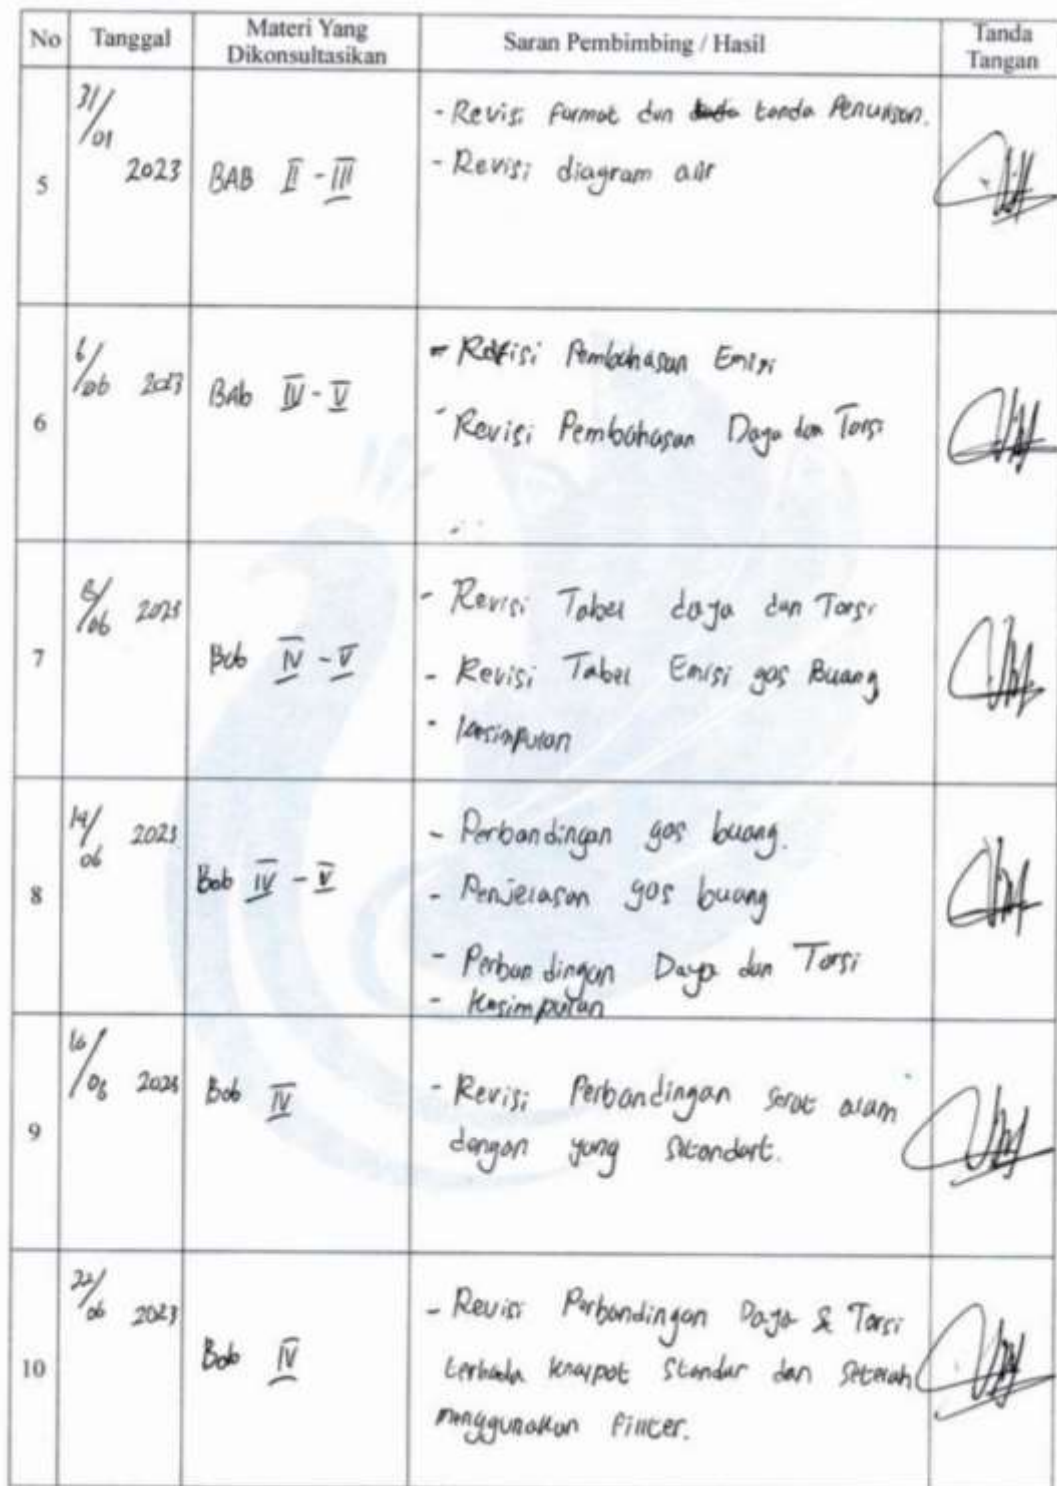 No Tanggal Materi Yang Dikonsultasikan Saran Pembimbing / Hasil Tanda Tangan
5
31/01 2023
BAB II - III
- Revisi Format dan tanda Penulisan.
- Revisi diagram alir
6
6/06 2023
BAb IV - V
- Refisi Pembahasan Emisi
- Revisi Pembahasan Daya dan Torsi
7
/06 2023
Bab IV - V
- Revisi Tabel daya dan Torsi
- Revisi Tabel Emisi gas Buang
- kesimpulan
8
14/06 2023
Bab IV - V
- Perbandingan gas buang.
- Penjelasan gas buang
- Perbandingan Daya dan Torsi
- Kesimpulan
9
16/06 2023
Bab IV
- Revisi Perbandingan serat alam
dengan yang setandart.
10
22/06 2023
Bab IV
- Revisi Perbandingan Daya & Torsi
terhada knalpot standar dan setelah
menggunakan fillter.